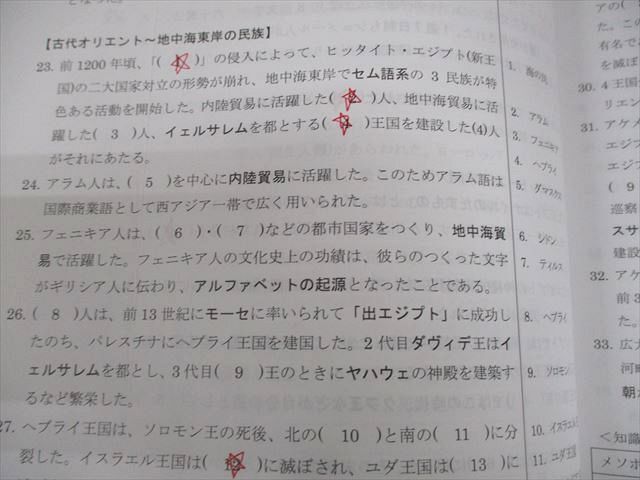 【古代オリエント～地中海東岸の民族】
23. 前1200年頃、「( )」の侵入によって、ヒッタイト・エジプト(新王
国)の二大国家対立の形勢が崩れ、地中海東岸でセム語系の 3 民族が特
色ある活動を開始した。内陸貿易に活躍した( 2 )人、地中海貿易に活
躍した( 3 )人、イェルサレムを都とする( 4 )王国を建設した(4)人
がそれにあたる。
24. アラム人は、( 5 )を中心に内陸貿易に活躍した。このためアラム語は
国際商業語として西アジア一帯で広く用いられた。
25. フェニキア人は、( 6 )・( 7 )などの都市国家をつくり、地中海貿
易で活躍した。フェニキア人の文化史上の功績は、彼らのつくった文字
がギリシア人に伝わり、アルファベットの起源となったことである。
26. ( 8 )人は、前13世紀にモーセに率いられて「出エジプト」に成功し
たのち、パレスチナにヘブライ王国を建国した。2代目ダヴィデ王はイ
ェルサレムを都とし、3代目( 9 )王のときにヤハウェの神殿を建築す
るなど繁栄した。
27. ヘブライ王国は、ソロモン王の死後、北の( 10 )と南の( 11 )に分
裂した。イスラエル王国は( 12 )に滅ぼされ、ユダ王国は( 13 )に
1. 海の民
2. アラム
3. フェニキア
4. ヘブライ
5. ダマスクス
6. シドン
7. ティルス
8. ヘブライ
9. ソロモン
10. イスラエル
11. ユダ王国
アの(
た。この
有名で
を滅ぼ
30. 4王国
リエン
31. アケメ
エジプ
( 9
巡察
スサ
建設
32. アケ
が
33. 広大
河
朝
＜知識
メソポ